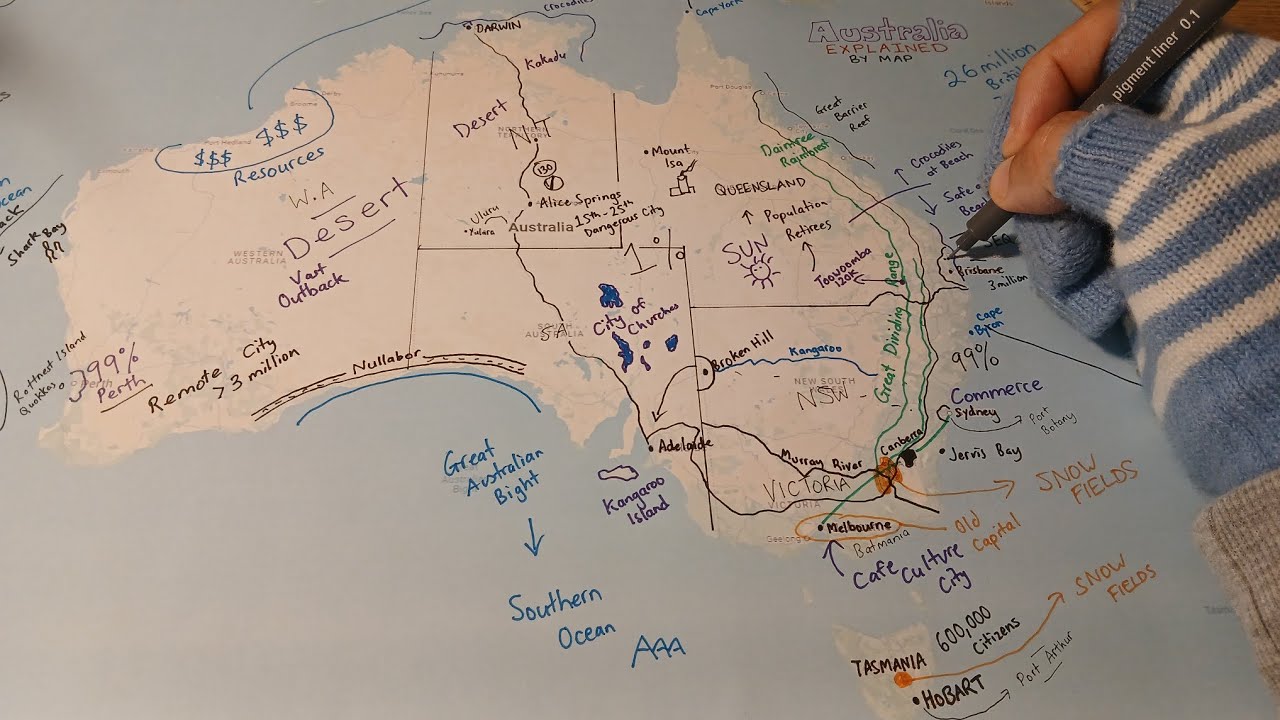 Crocodiles
Cape York
DARWIN
Australia
EXPLAINED
BY MAP
26 million
Kakadu
pigment liner 0.1
Port Douglas
Great
Barrier
Reef
$$$ $$$
Resources
Desert
N.T
NORTHERN
TERRITORY
Daintree
Rainforest
130
Mount
Isa
Crocodiles
at Beach
QUEENSLAND
W.A
Desert
Alice Springs
15th-25th
Dangerous City
Uluru
Yulara
Australia
Population
Retirees
Safe
Shark Bay
WESTERN
AUSTRALIA
Vast
Outback
1%
SUN
Toowoomba
120K
Brisbane
3 million
City of
Churches
SOUTH
AUSTRALIA
SA
Great Dividing Range
Cape
Byron
99%
Rottnest Island
Quokkas
>99%
Perth
Remote City
>3 million
Nullabor
Broken Hill
Kangaroo
NEW SOUTH
WALES
NSW
Commerce
Sydney
Port
Botany
Great
Australian
Bight
Adelaide
Murray River
Canberra
Jervis Bay
Kangaroo
Island
VICTORIA
VICTORIA
SNOW
FIELDS
Geelong
Melbourne
Batmania
Old
Capital
Cafe Culture
City
Southern
Ocean
AAA
SNOW
FIELDS
600,000
Citizens
TASMANIA
HOBART
Port Arthur